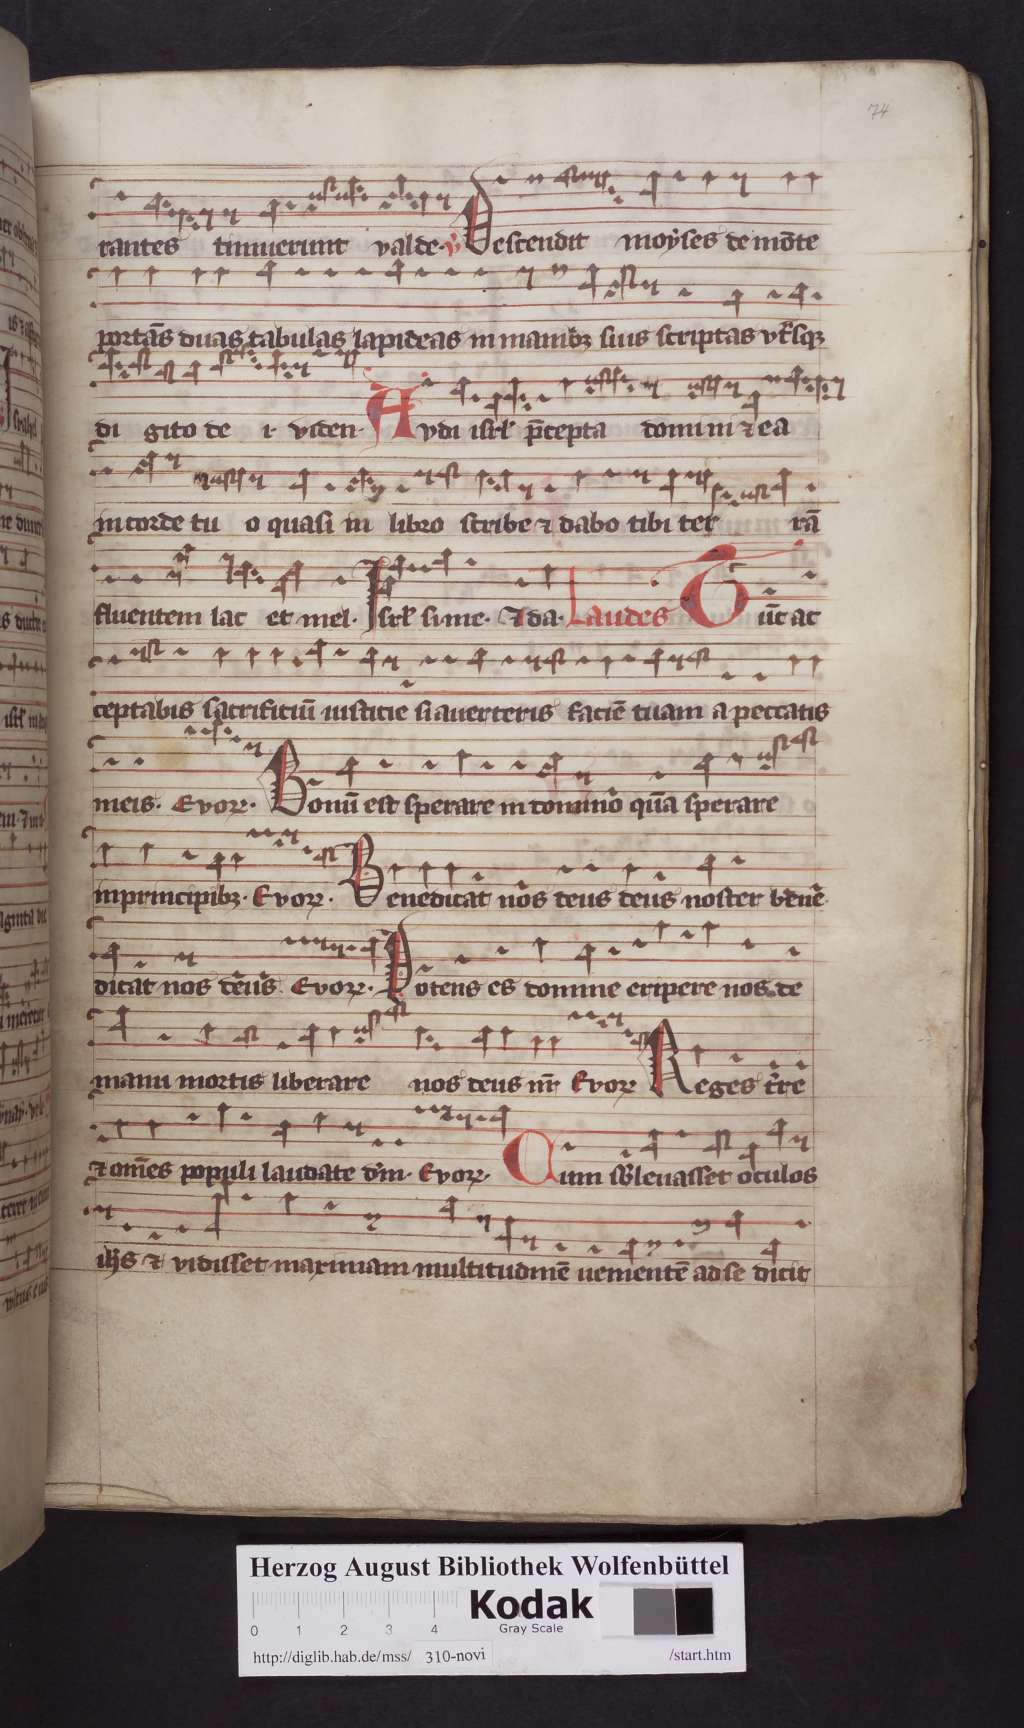 74
rantes timuerunt valde. v̓ Descendit moyses de mōte
portās duas tabulas lapideas in manibꝫ suis scriptas vtⁱsqꝫ
di gito de i. viden. Avdi isrl̓ p̄cepta domini ⁊ ea
in corde tu o quasi in libro scribe ⁊ dabo tibi ter rā
fluentem lac et mel. Isrl̓ si me. ⁊ da. Laudes Tūc ac
ceptabis sacrificiū iusticie si averteris faciē tuam a peccatis
meis. Evoꝝ. Bonū est sperare in domino quā sperare
in principibꝫ. Evoꝝ. Benedicat nos deus deus noster bene
dicat nos deus. Evoꝝ. Potens es domine eripere nos de
manu mortis liberare nos deus nr̄ Evoꝝ Reges t̄re
⁊ om̄es populi laudate dm̄. Evoꝝ. Cum sb̓levasset oculos
ihs̄ ⁊ vidisset maximam multitudinē uenientē ad se dicit
Herzog August Bibliothek Wolfenbüttel
0 1 2 3 4 Kodak
Gray Scale
http://diglib.hab.de/mss/ 310-novi /start.htm